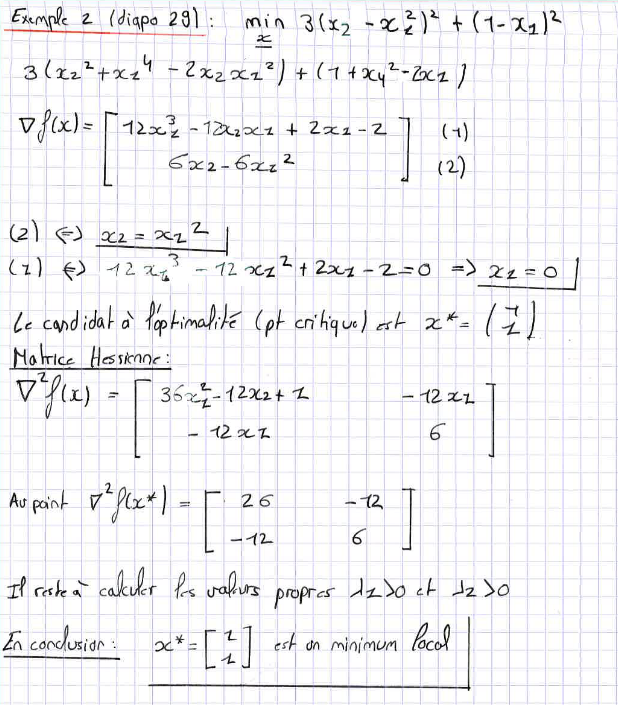 Exemple 2 (diapo 29) : min 3(x₂ - x₁²)² + (1-x₁)²
x
3(x₂² + x₁⁴ - 2x₂x₁²) + (1 + x₁² - 2x₁)
∇f(x) = [ 12x₁³ - 12x₂x₁ + 2x₁ - 2 ] (1)
[ 6x₂ - 6x₁² ] (2)
(2) ⇔ x₂ = x₁²
(1) ⇔ 12x₁³ - 12x₁² + 2x₁ - 2 = 0 => x₁ = 0
Le candidat à l'optimalité (pt critique) est x* = (1 1)
Matrice Hessienne :
∇²f(x) = [ 36x₁² - 12x₂ + 2 - 12x₁ ]
[ - 12x₁ 6 ]
Au point ∇²f(x*) = [ 26 - 12 ]
[ -12 6 ]
Il reste à calculer les valeurs propres λ₁>0 et λ₂>0
En conclusion : x* = [1 1] est un minimum local